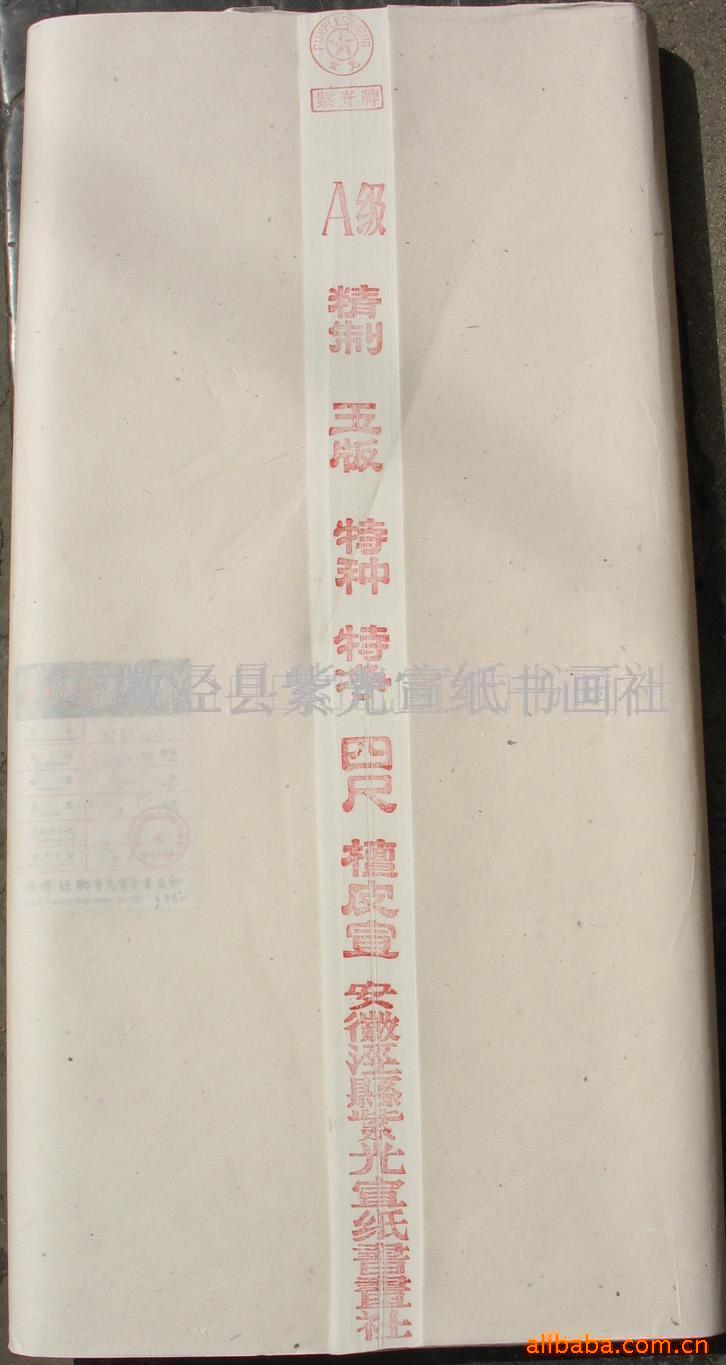 PURPLESHINING
紫光
紫光牌
A级
精制
玉版
特种
特净
四尺
檀皮宣
安徽泾縣紫光宣纸書畫社
安徽泾县紫光宣纸书画社
alibaba.com.cn